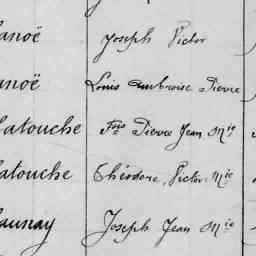 anoë Joseph Victor
anoë Louis Ambroise Pierre
atouche Fois Pierre Jean Mie
atouche Théodore Victor Mie
aunay Joseph Jean Mie